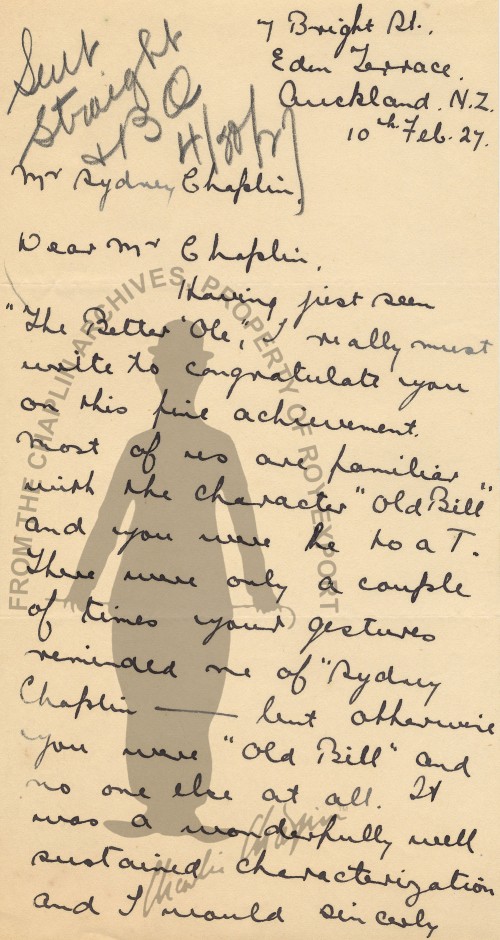 7 Bright St.,
Eden Terrace.
Auckland. N.Z.
10th Feb. 27.
Sent
Straight
+ BO
4/30/27
Mr Sydney Chaplin,
Dear Mr Chaplin,
Having just seen
"The Better 'Ole", I really must
write to congratulate you
on this fine achievement.
Most of us are familiar
with the character "Old Bill"
and you were he to a T.
There were only a couple
of times your gestures
reminded me of "Sydney
Chaplin — but otherwise
you were "Old Bill" and
no one else at all. It
was a wonderfully well
sustained characterization
and I would sincerly
FROM THE CHAPLIN ARCHIVES, PROPERTY OF ROY EXPORT
Charlie Chaplin